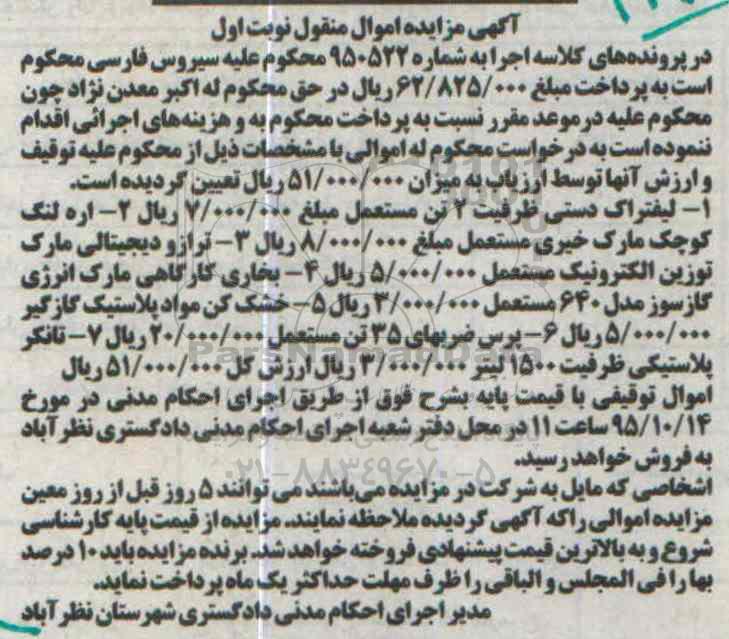 آگهی مزایده اموال منقول نوبت اول
در پرونده‌های کلاسه اجرا به شماره ۹۵۰۵۲۲ محکوم علیه سیروس فارسی محکوم
است به پرداخت مبلغ ۶۲/۸۲۵/۰۰۰ ریال در حق محکوم له اکبر معدن نژاد چون
محکوم علیه در موعد مقرر نسبت به پرداخت محکوم به و هزینه‌های اجرائی اقدام
ننموده است به درخواست محکوم له اموالی با مشخصات ذیل از محکوم علیه توقیف
و ارزش آنها توسط ارزیاب به میزان ۵۱/۰۰۰/۰۰۰ ریال تعیین گردیده است.
۱- لیفتراک دستی ظرفیت ۲ تن مستعمل مبلغ ۷/۰۰۰/۰۰۰ ریال ۲- اره لنگ
کوچک مارک خیری مستعمل مبلغ ۸/۰۰۰/۰۰۰ ریال ۳- ترازو دیجیتالی مارک
توزین الکترونیک مستعمل ۵/۰۰۰/۰۰۰ ریال ۴- بخاری کارگاهی مارک انرژی
گازسوز مدل ۶۴۰ مستعمل ۳/۰۰۰/۰۰۰ ریال ۵- خشک کن مواد پلاستیک گازگیر
۵/۰۰۰/۰۰۰ ریال ۶- پرس ضربهای ۳۵ تن مستعمل ۲۰/۰۰۰/۰۰۰ ریال ۷- تانکر
پلاستیکی ظرفیت ۱۵۰۰ لیتر ۳/۰۰۰/۰۰۰ ریال ارزش کل ۵۱/۰۰۰/۰۰۰ ریال
اموال توقیفی با قیمت پایه بشرح فوق از طریق اجرای احکام مدنی در مورخ
۹۵/۱۰/۱۴ ساعت ۱۱ در محل دفتر شعبه اجرای احکام مدنی دادگستری نظرآباد
به فروش خواهد رسید.
۰۲۱-۸۸۳۴۹۶۷۰-۵
اشخاصی که مایل به شرکت در مزایده می‌باشند می توانند ۵ روز قبل از روز معین
مزایده اموالی را که آگهی گردیده ملاحظه نمایند. مزایده از قیمت پایه کارشناسی
شروع و به بالاترین قیمت پیشنهادی فروخته خواهد شد. برنده مزایده باید ۱۰ درصد
بها را فی المجلس و الباقی را ظرف مهلت حداکثر یک ماه پرداخت نماید.
مدیر اجرای احکام مدنی دادگستری شهرستان نظرآباد
ParsNamadData